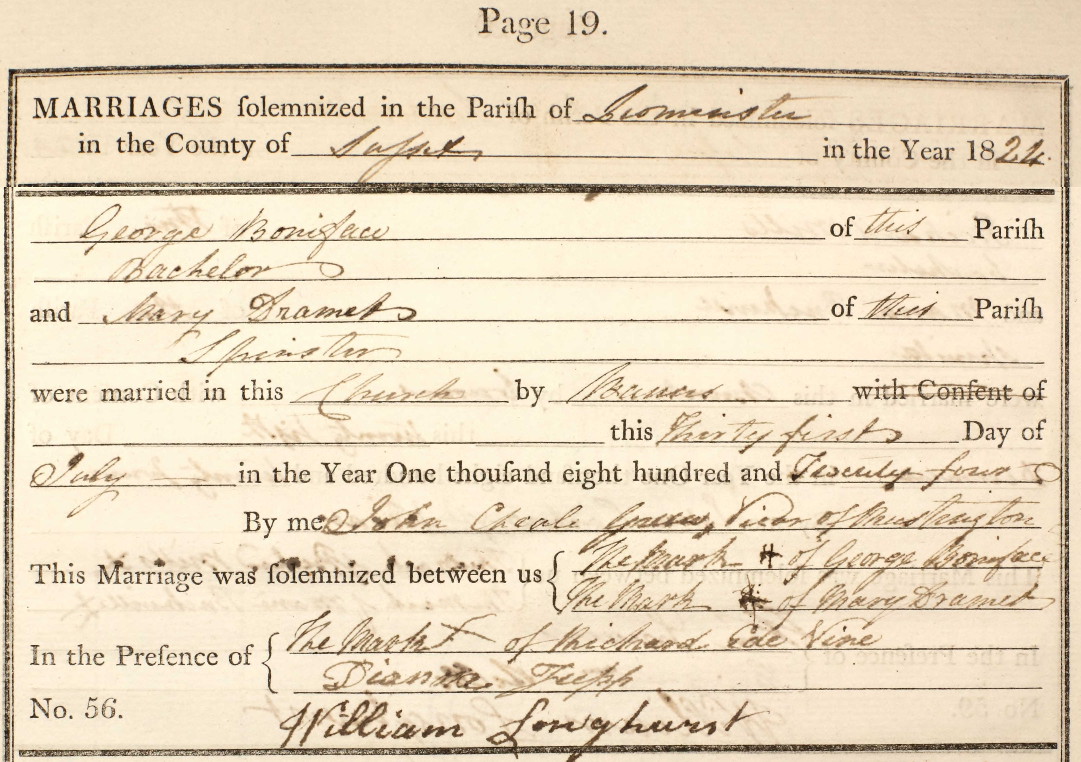 Page 19.
MARRIAGES ſolemnized in the Pariſh of Leominster
in the County of Suſsex in the Year 1824.
George Boniface of this Pariſh
Bachelor
and Mary Dramet of this Pariſh
Spinster
were married in this Church by Banns with Conſent of
this Thirty first Day of
July in the Year One thouſand eight hundred and Twenty four
By me John Cheale Green, Vicar of Rustington
This Marriage was ſolemnized between us { The Mark of George Boniface
The Mark of Mary Dramet
In the Preſence of { The Mark X of Richard Ede Vine
Dianna Tupp
No. 56.
William Longhurst